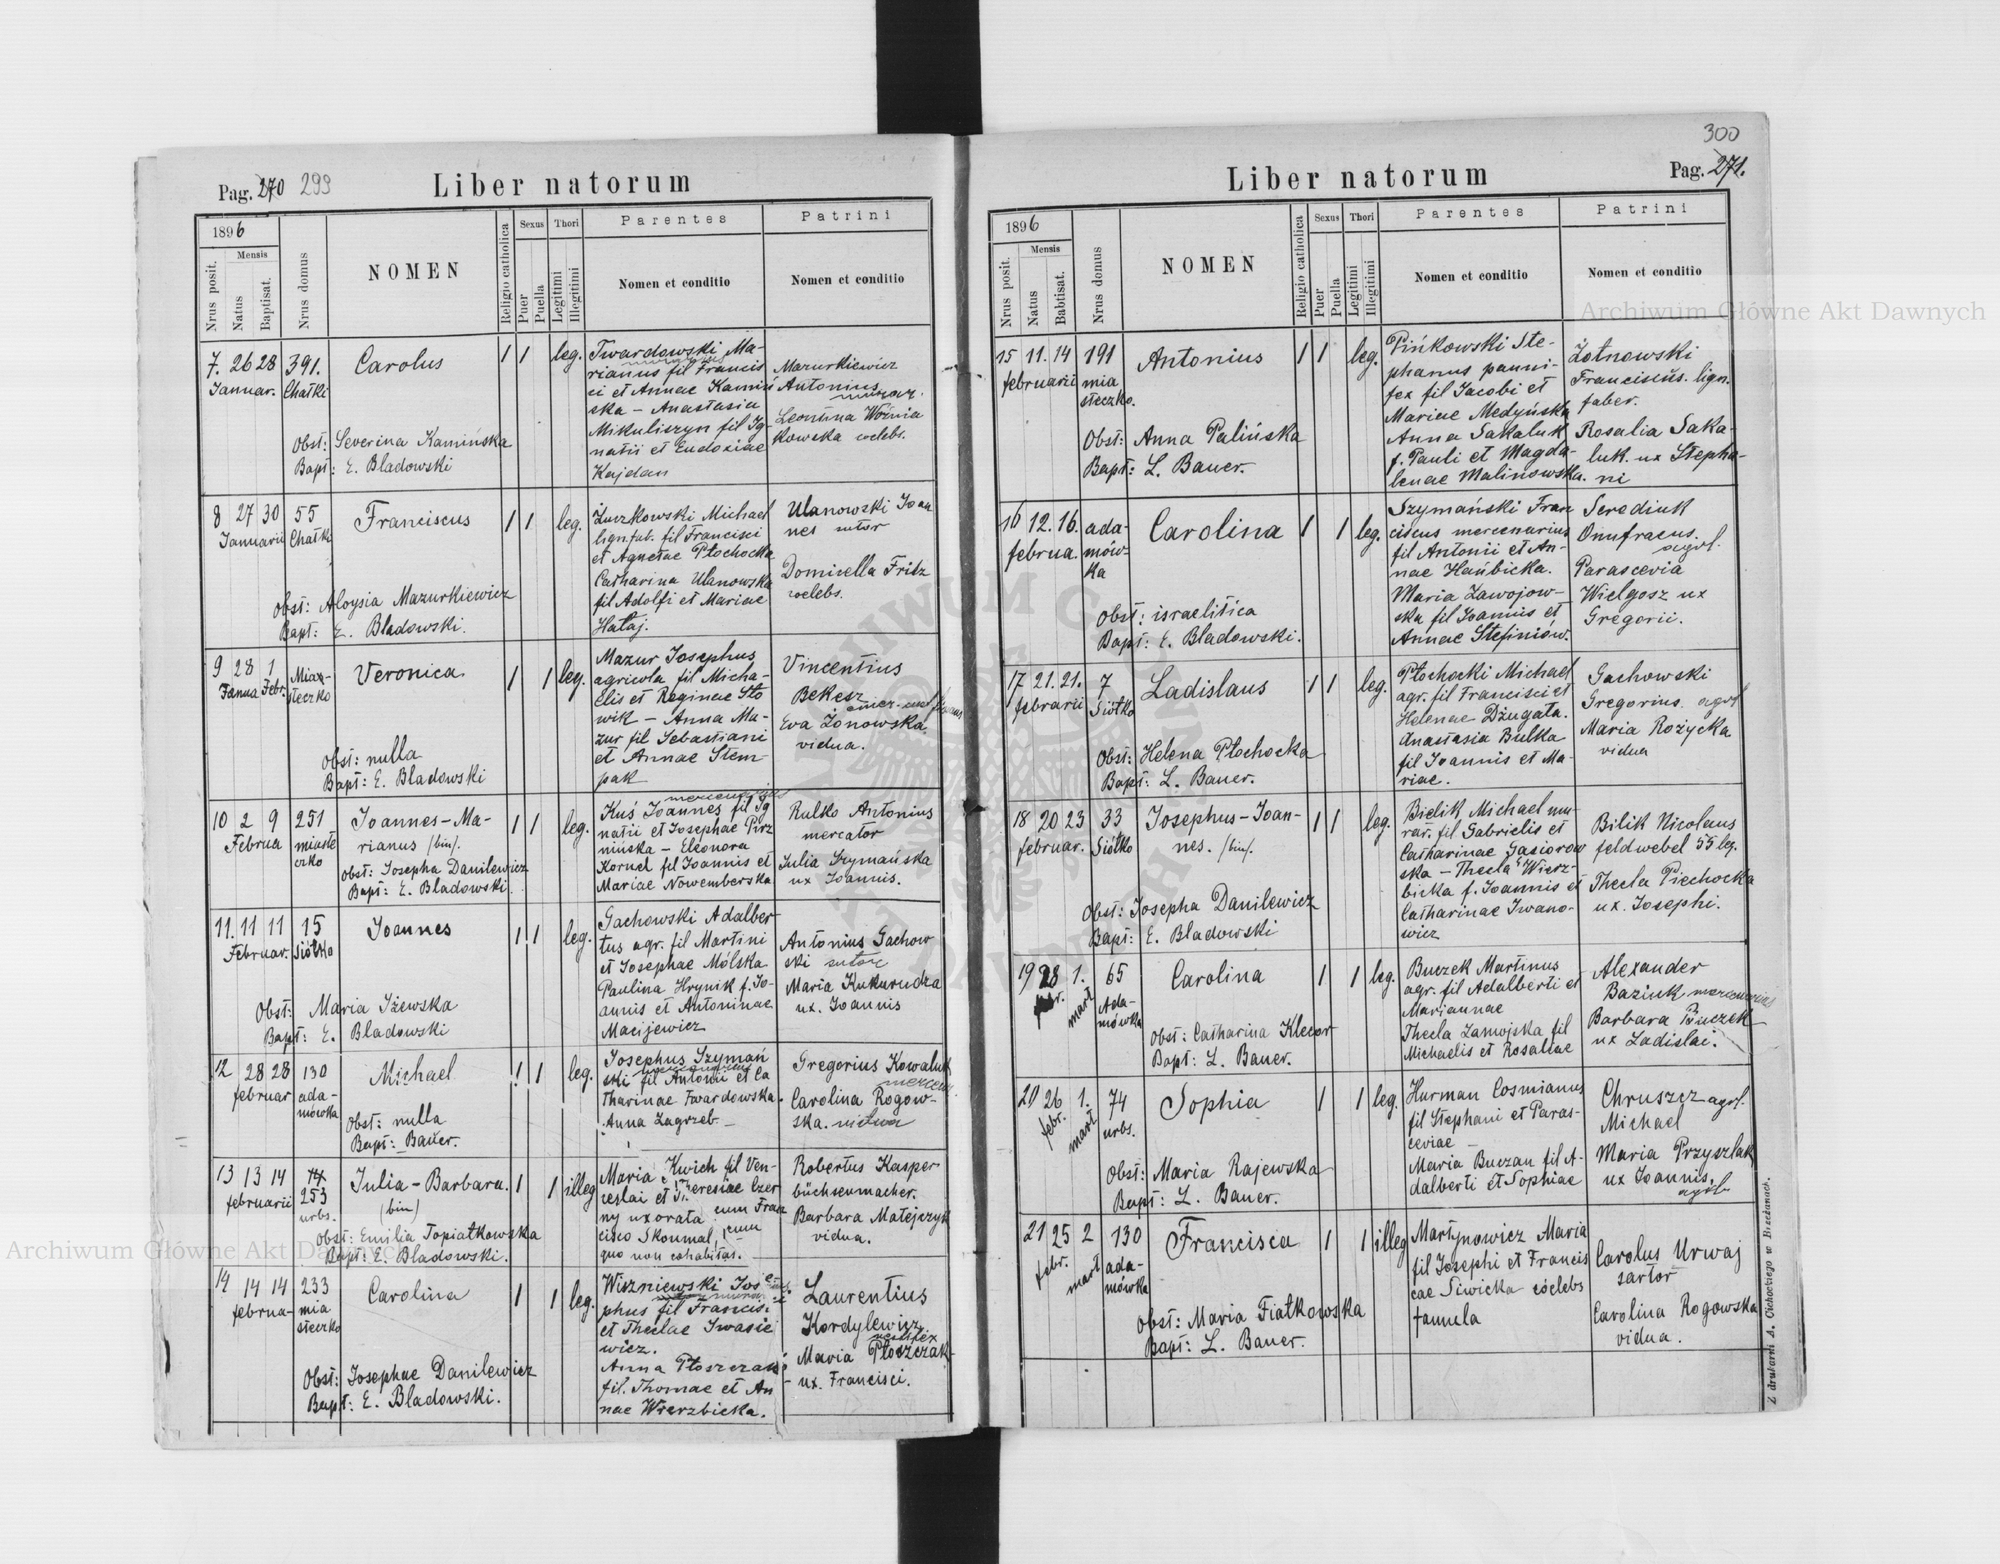 Pag. 270 299
Liber natorum
1896
Mensis
Nrus posit.
Natus
Baptisat.
Nrus domus
NOMEN
Religio catholica
Sexus
Puer
Puella
Thori
Legitimi
Illegitimi
Parentes
Nomen et conditio
Patrini
Nomen et conditio
7. 26 28 391.
Januar. Chatki
Carolus
1 1 leg.
Obst: Severina Kamińska
Bapt: E. Bladowski
Twardowski Ma-
rianus fil Francis
ci et Annae Kamiń
ska - Anastasia
Mikuliszyn fil Ig-
natii et Eudoxiae
Kajdan
Mazurkiewicz
Antonius
murar.
Leontina Woźnia
kowska coelebs.
8 27 30 55
Januarii Chatki
Franciscus
1 1 leg.
Obst: Aloysia Mazurkiewicz
Bapt: E. Bladowski.
Żuczkowski Michael
lign.fab. fil Francisci
et Agnetae Płochocka
Catharina Ulanowska
fil Adolfi et Mariae
Hataj.
Ulanowski Joan
nes sutor
Domicella Fritz
coelebs.
9 28 1 Miaz-
Janua Febr. steczko
Veronica
1 1 leg.
Obst: nulla
Bapt: E. Bladowski
Mazur Josephus
agricola fil Micha-
elis et Reginae Sło
wik - Anna Ma-
zur fil Sebastiani
et Annae Stem
pak
Vincentius
Bekesz
Eva Żonowska
vidua.
10 2 9 251
Februa miaste
czko
Joannes-Ma-
rianus /bin/.
1 1 leg.
Obst: Josepha Danilewicz
Bapt: E. Bladowski.
mercenarius
Kuś Joannes fil Ig
natii et Josephae Pirz
nińska - Eleonora
Kornel fil Joannis et
Mariae Nowemberska
Rulko Antonius
mercator
Julia Szymańska
ux Joannis.
11. 11 11 15
Februar. Siołko
Joannes
1 1 leg.
Obst: Maria Iżewska
Bapt: E. Bladowski
Gachowski Adalber
tus agr. fil Martini
et Josephae Mólska
Paulina Hrynik f. Jo-
annis et Antoninae
Macijewicz
Antonius Gachow
ski sutor
Maria Kukurudza
ux. Joannis
12 28 28 130
februar ada-
mówka
Michael
1 1 leg.
Obst: nulla
Bapt: Bauer.
Josephus Szymań
ski fil Antonii et Ca
tharinae Twardowska.
Anna Zagrzeb. -
Gregorius Kowaluk
mercen.
Carolina Rogow-
ska. vidua
13 13 14 14
februarii 253
urbs.
Julia-Barbara.
(bin)
1 1 illeg
Obst: Emilia Topiatkowska
Bapt: E. Bladowski.
Maria Kwich fil Ven-
ceslai et Theresiae Czer
ny uxorata cum Fran
cisco Skoumal, cum
quo non cohabitat.
Robertus Kasper
büchsenmacher.
Barbara Matejczyk
vidua.
14 14 14 233
februa- mia
steczko
Carolina
1 1 leg.
Obst: Josephae Danilewicz
Bapt: E. Bladowski.
Wiszniewski Jose
phus fil Francisi
et Theclae Iwasie
wicz.
Anna Płoszczak
fil. Thomae et An
nae Wierzbicka.
Laurentius
Kordylewicz
Maria Płoszczak
ux. Francisci.
300
Pag. 271.
Liber natorum
1896
Mensis
Nrus posit.
Natus
Babtisat.
Nrus domus
NOMEN
Religio catholica
Sexus
Puer
Puella
Thori
Legitimi
Illegitimi
Parentes
Nomen et conditio
Patrini
Nomen et conditio
15 11. 14 191
februarii mia
steczko.
Antonius
1 1 leg.
Obst: Anna Palińska
Bapt: L. Bauer.
Pińkowski Ste-
phanus panni-
fex fil Jacobi et
Mariae Medyńska
Anna Sakaluk
f. Pauli et Magda-
lenae Malinowska.
Żotnowski
Franciscus. lign.
faber.
Rosalia Saka-
luk. ux Stepha-
ni
16 12. 16. ada-
februa. mów-
ka
Carolina
1 1 leg.
Obst: israelitica
Bapt: E. Bladowski.
Szymański Fran
ciscus mercenarius
fil Antonii et An-
nae Hańbicka.
Maria Zawojow-
ska fil Joannis et
Annae Stefiniów.
Serediuk
Onufraeus.
agrl.
Parascevia
Wielgosz ux
Gregorii.
17 21. 21. 7
februarii Siołko
Ladislaus
1 1 leg.
Obst: Helena Płochocka
Bapt: L. Bauer.
Płochocki Michael
agr. fil Francisci et
Helenae Dżugała.
Anastasia Bulka
fil Joannis et Ma-
riae.
Gachowski
Gregorius agrl
Maria Rożycka
vidua
18 20 23 33
februar. Siołko
Josephus-Joan-
nes. /bin/.
1 1 leg.
Obst: Josepha Danilewicz
Bapt: E. Bladowski
Bielik Michael mu-
rar. fil Gabrielis et
Catharinae Gąsiorow
ska - Thecla Wierz-
bicka f. Joannis et
Catharinae Iwano-
wicz
Bilik Nicolaus
feldwebel 55 leg.
Thecla Piechocka
ux. Josephi.
19 28 1. 65
febr. mart Ada-
mówka
Carolina
1 1 leg.
Obst: Catharina Klecor
Bapt: L. Bauer.
Buczek Martinus
agr. fil Adalberti et
Mariannae
Thecla Zamojska fil
Michaelis et Rosaliae
Alexander
Baziuk mercenarius
Barbara Buczek
ux Ladislai.
20 26 1. 74
febr. mart urbs.
Sophia
1 1 leg.
Obst: Maria Rajewska
Bapt: L. Bauer.
Hurman Cosmianus
fil Stephani et Paras-
ceviae
Maria Buczan fil A-
dalberti et Sophiae
Chruszcz agrl.
Michael
Maria Przyszlak
ux Joannis.
agrl.
21 25 2 130
febr. mart ada-
mówka
Francisca
1 1 illeg
Obst: Maria Fiatkowska
Bapt: L. Bauer.
Martynowicz Maria
fil Josephi et Francis
cae Siwicka coelebs
famula
Carolus Urwaj
sartor
Carolina Rogowska
vidua.
Z drukarni A. Cichockiego w Brzeżanach.
Archiwum Główne Akt Dawnych
Archiwum Główne Akt Dawnych